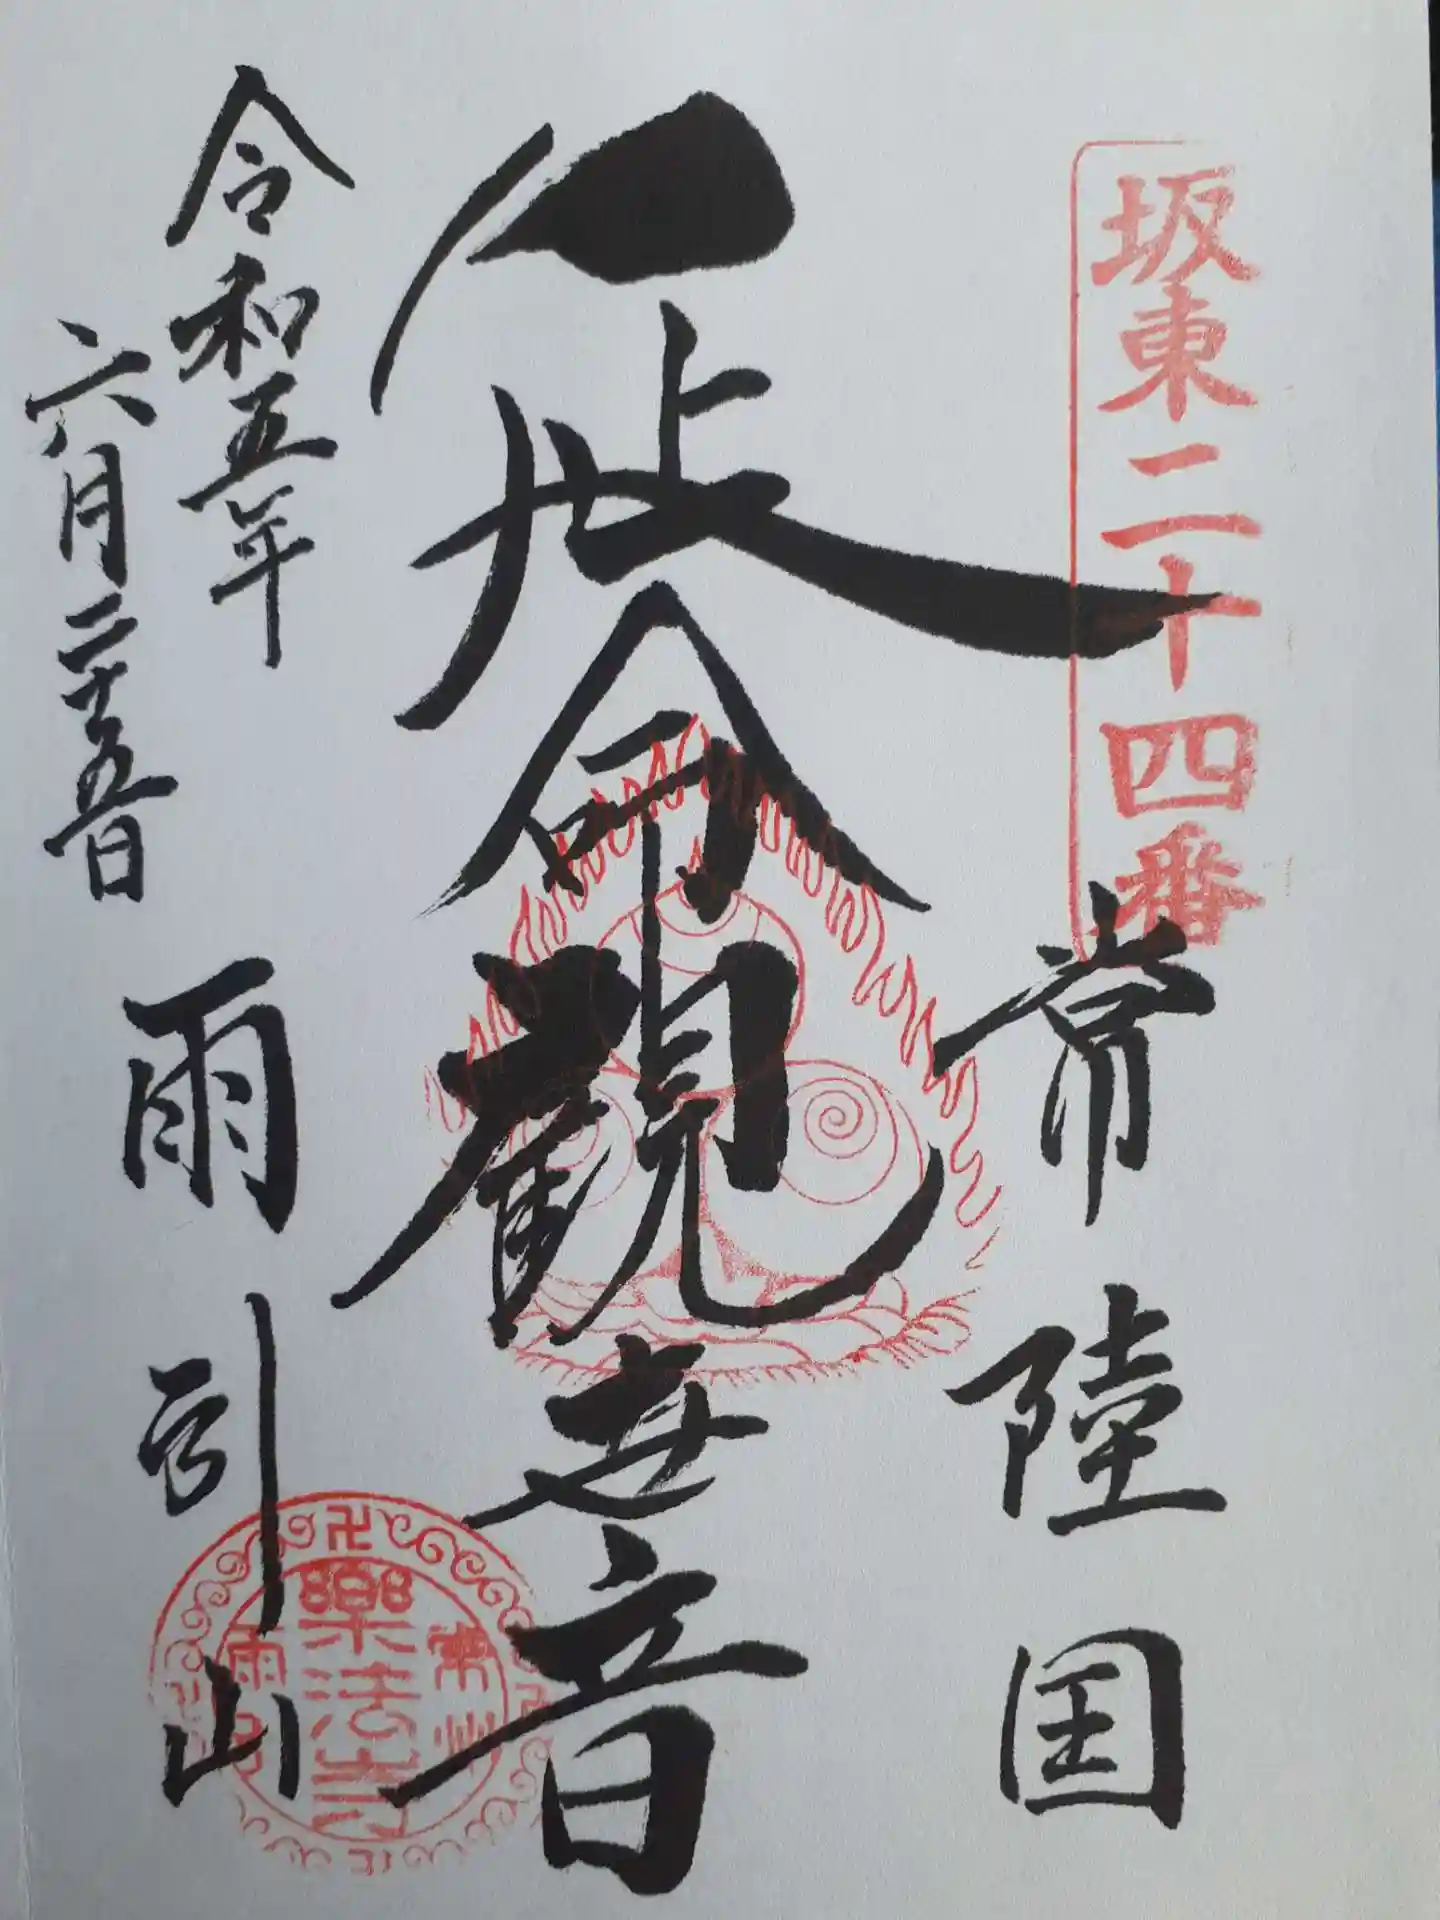 坂東二十四番
常陸国
延命観世音
令和五年
六月二十五日
雨引山
常州
樂法寺
雨引